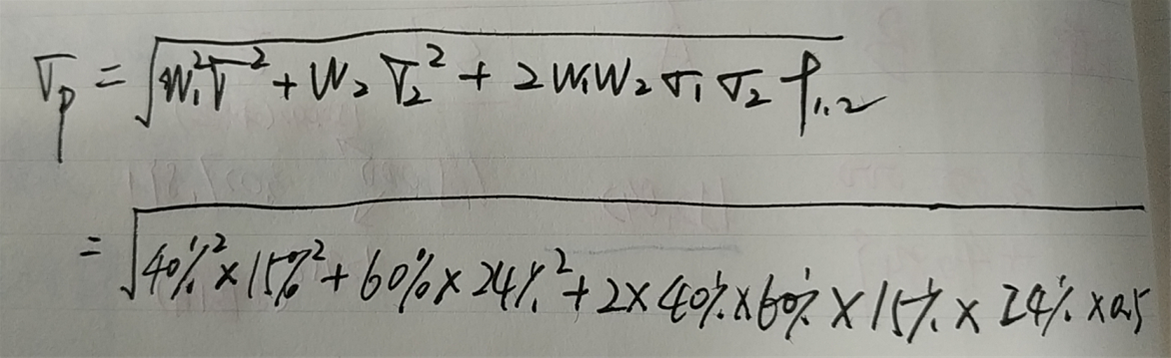 σp = √(W₁²σ² + W₂ σ₂² + 2W₁W₂ σ₁ σ₂ ρ₁.₂)
= √(40%² × 15%² + 60% × 24%² + 2 × 40% × 60% × 15% × 24% × 0.5)